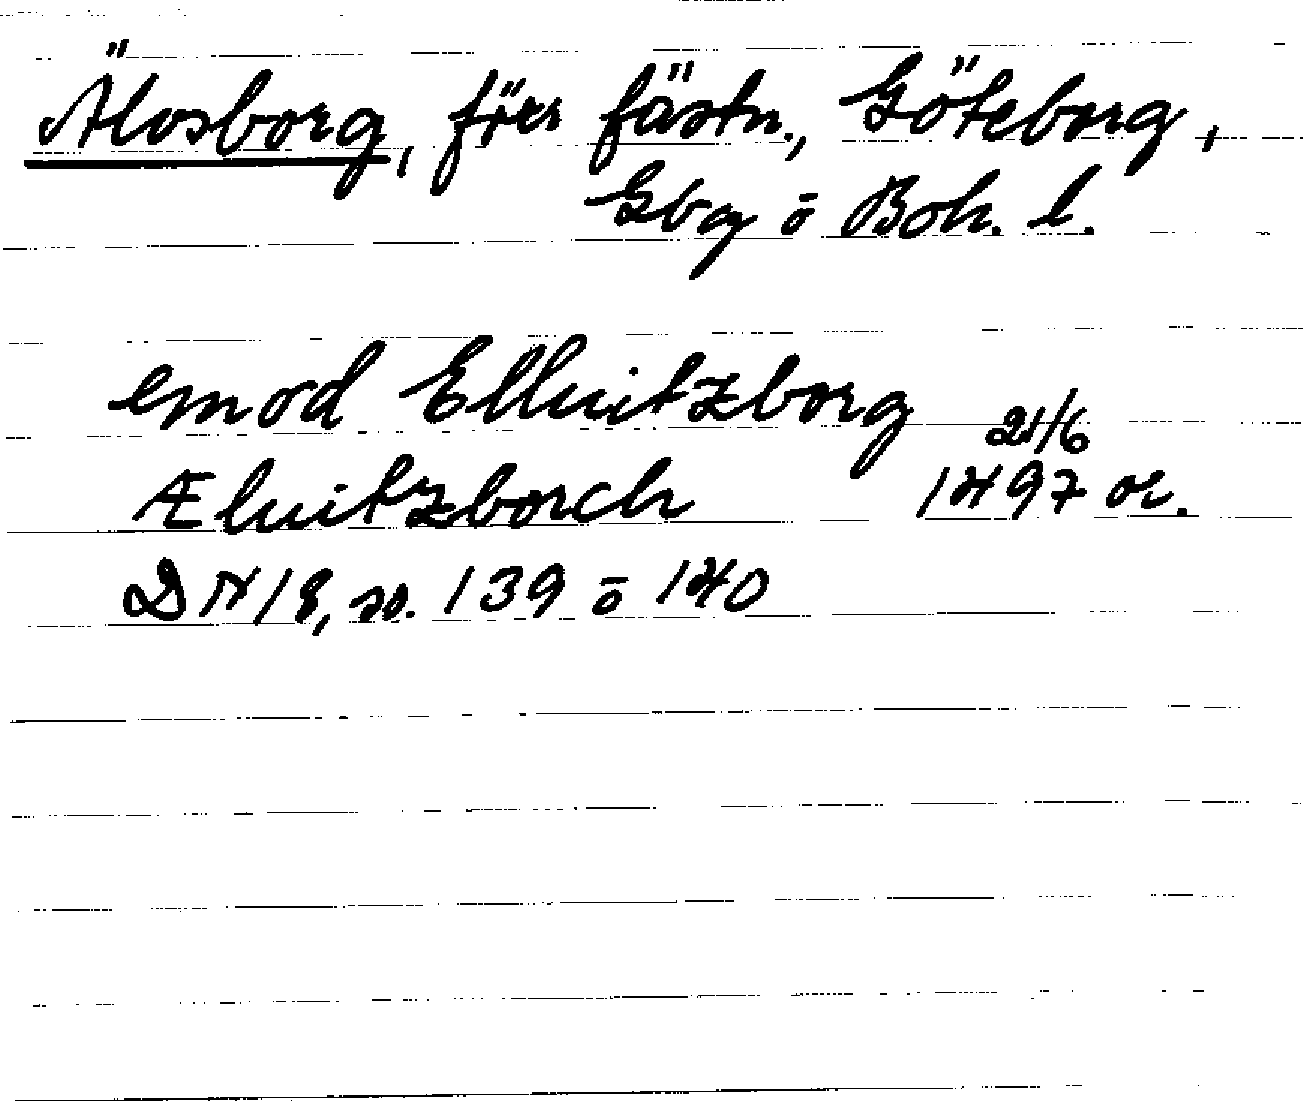 Älvsborg, förr fästn., Göteborg,
Gbg o Boh. l.
emod Elluitzborg 21/6
Æluitzborch 1497 or.
DN 18, ss. 139 o 140